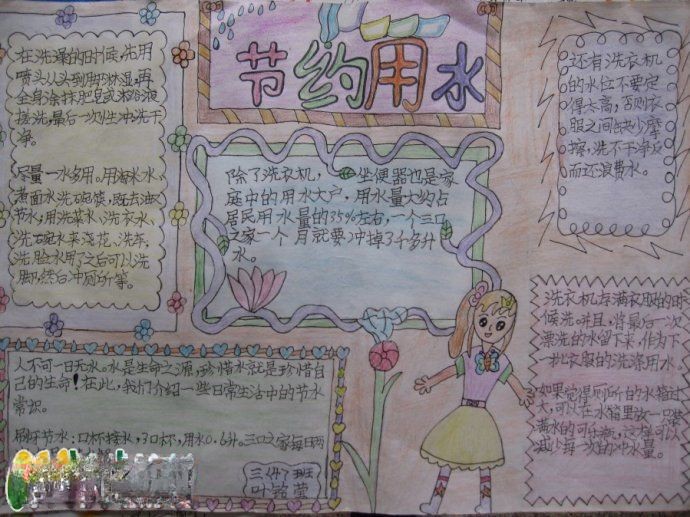 节约用水
在洗澡的时候,先用
喷头从头到脚淋湿,再
全身涂抹肥皂或沐浴液
搓洗,最后一次性冲洗干
净。
尽量一水多用。用淘米水、
煮面水洗碗筷,既去油又
节水,用洗菜水、洗衣水、
洗碗水来浇花、洗车,
洗脸水用了之后可以洗
脚,然后冲厕所等。
除了洗衣机,坐便器也是家
庭中的用水大户,用水量大约占
居民用水量的35%左右,一个三口
之家一个月就要冲掉3千多升
水。
还有洗衣机
的水位不要定
得太高,否则衣
服之间缺少摩
擦,洗不干净反
而还浪费水。
洗衣机存满衣服的时
候洗。并且,将最后一次
漂洗的水留下来,作为下
一批衣服的洗涤用水。
如果觉得厕所的水箱过
大,可以在水箱里放一只装
满水的可乐瓶,这样可以
减少每一次的冲水量。
人不可一日无水。水是生命之源,珍惜水就是珍惜自
己的生命!在此,我们介绍一些日常生活中的节水
常识。
刷牙节水:口杯接水,3口杯,用水0.6升。三口之家每日两
班
叶 莹